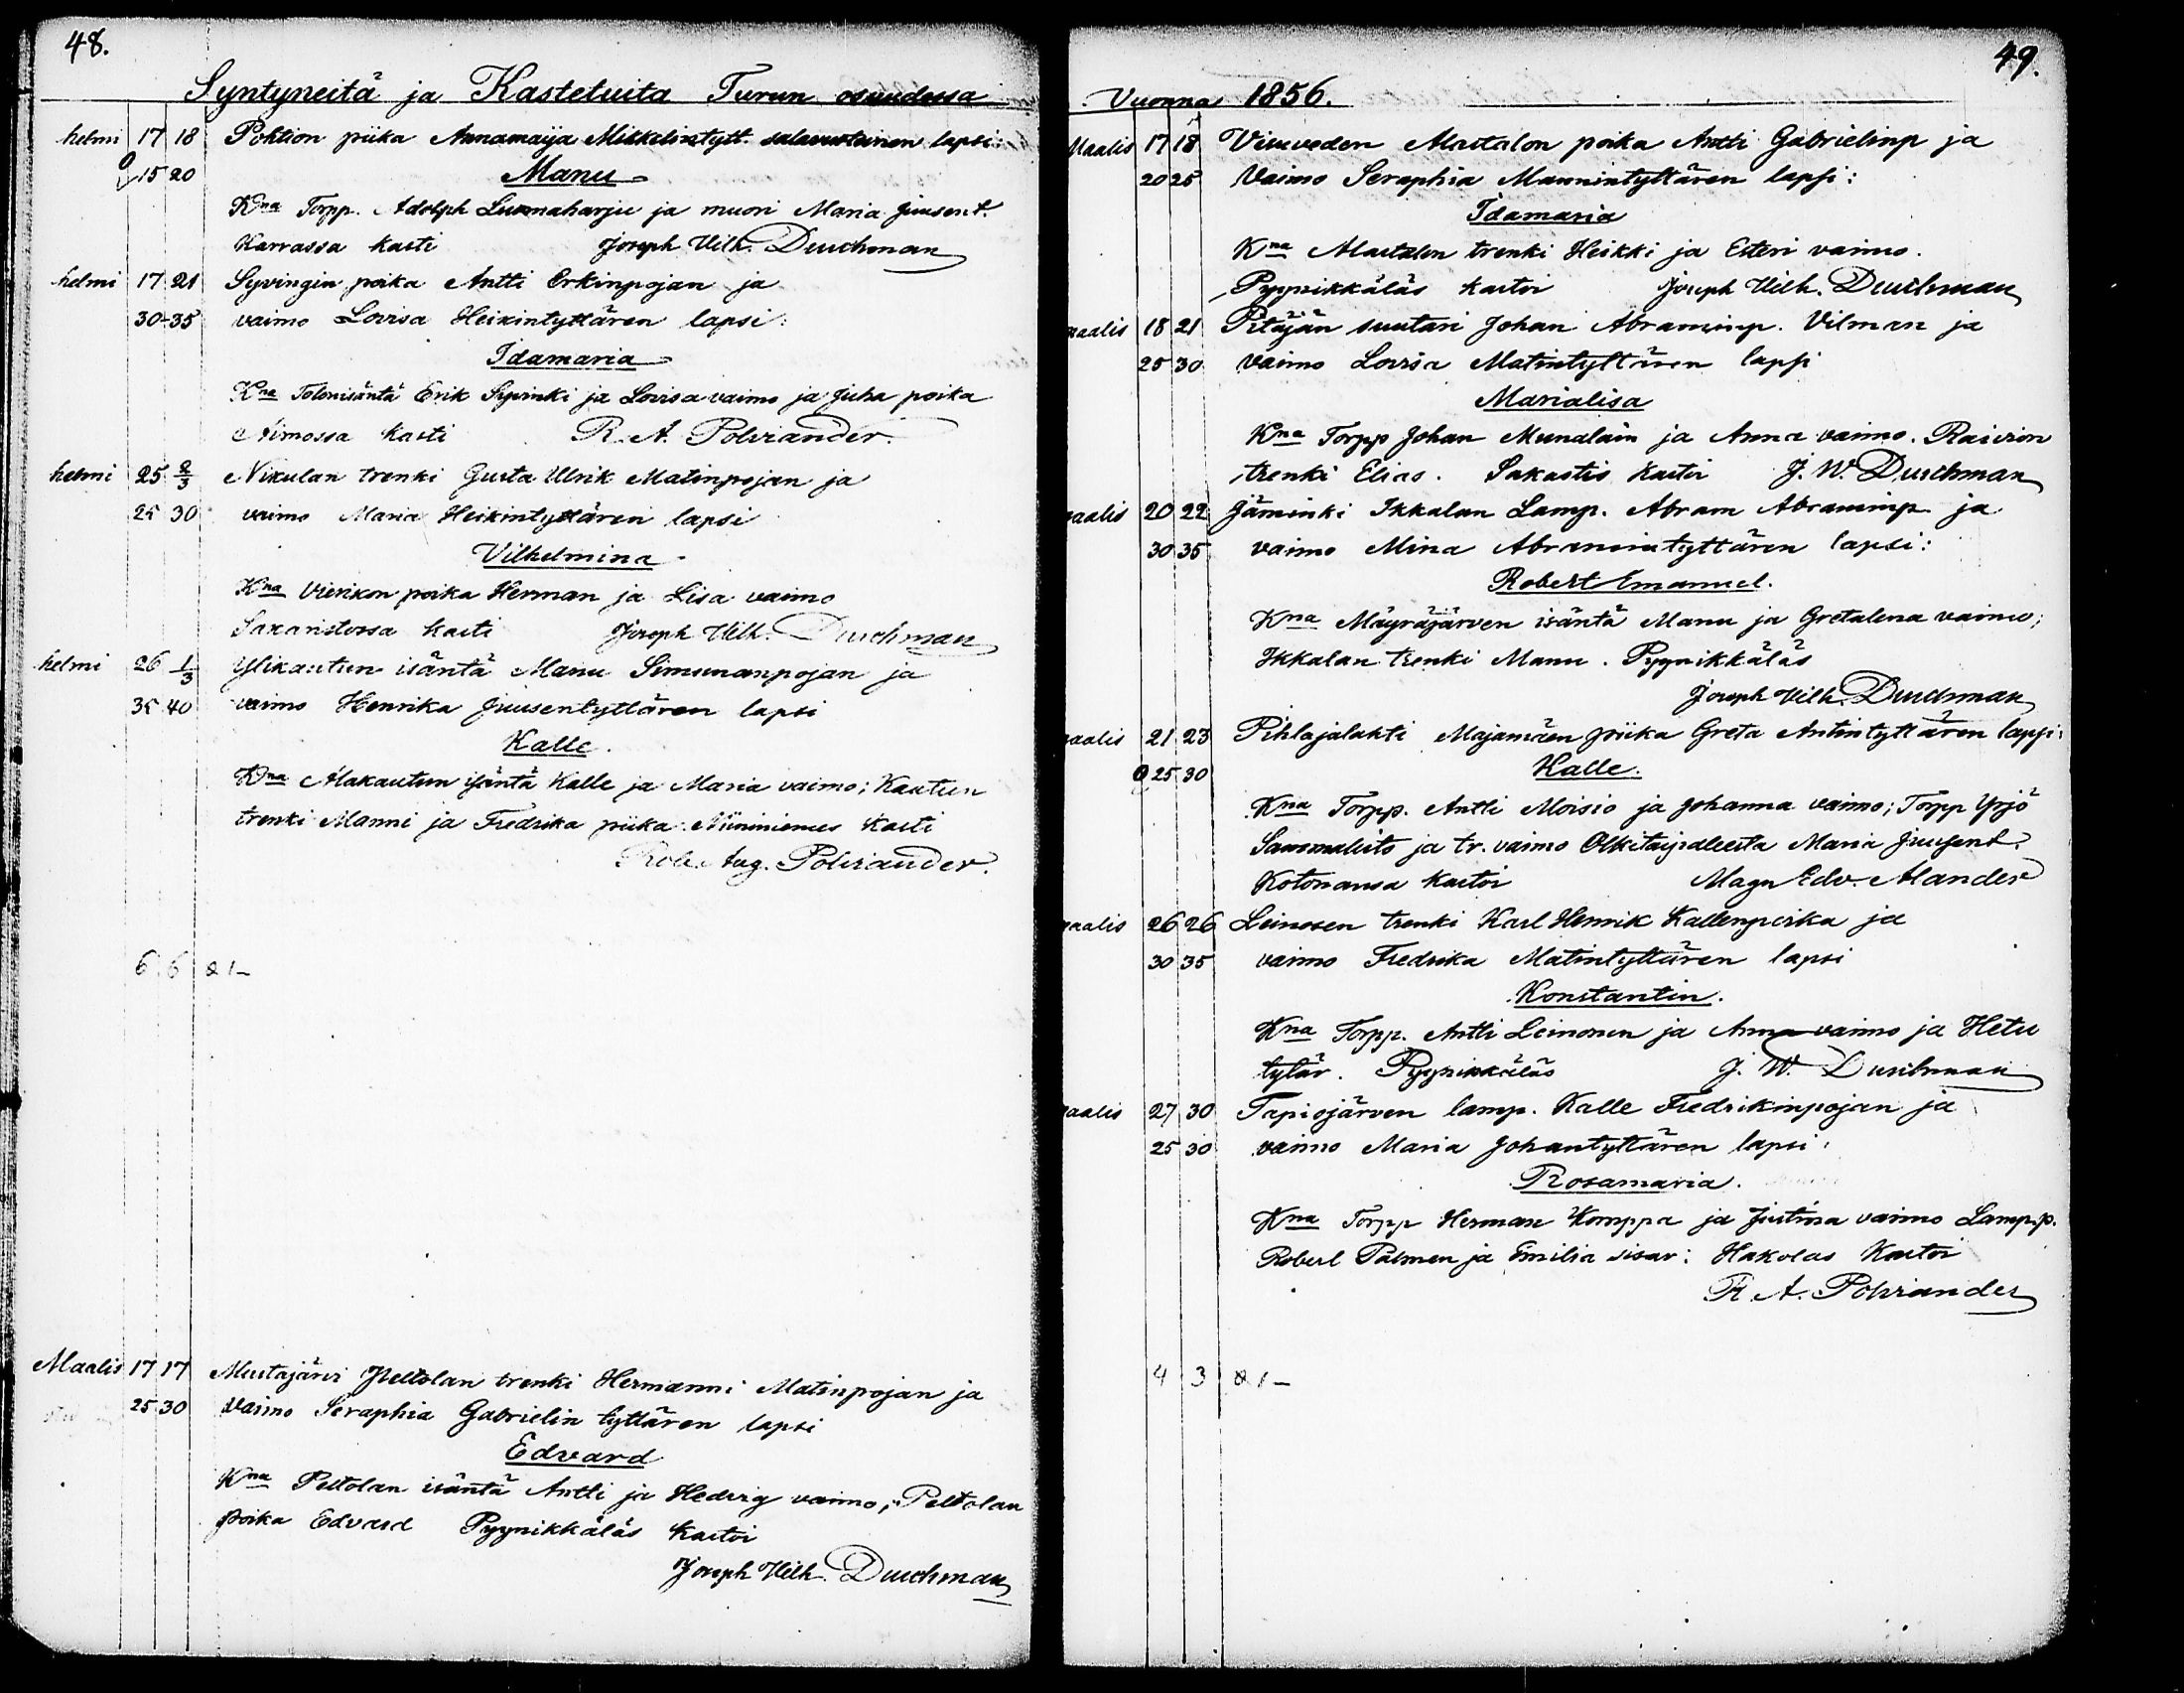 48.
Syntyneitä ja Kasteluita Turun osuudessa
helmi 17 18 Pohtion piika Annamaija Mikkelintytt. salavuoteinen lapsi:
15 20 Manu
Kna Torpp. Adolph Luomaharju ja muori Maria Juusent.
Karrassa kasti Joseph Vilh. Durchman
helmi 17 21 Syvingin poika Antti Erkinpojan ja
30-35 vaimo Lovisa Heikintyttären lapsi:
Idamaria
Kna Tolonisäntä Erik Syvinki ja Lovisa vaimo ja Juha poika
Aimossa kasti R. A. Polviander.
helmi 25 2/3 Nikulan trenki Gusta Ulrik Matinpojan ja
25 30 vaimo Maria Heikintyttären lapsi
Vilhelmina
Kna Vierikon poika Herman ja Lisa vaimo
Saxaristossa kasti Joseph Vilh. Durchman
helmi 26 1/3 Ylikautun isäntä Manu Simunanpojan ja
35 40 vaimo Henrika Juusentyttären lapsi
Kalle.
Kna Alakautun isäntä Kalle ja Maria vaimo; Kautun
trenki Manni ja Fredrika piika. Niininiemes kasti
Rob. Aug. Polviander.
6 6 & 1-
Maalis 17 17 Mustajärvi Peltolan trenki Hermanni Matinpojan ja
25 30 vaimo Seraphia Gabrielin tyttären lapsi
Edvard
Kna Peltolan isäntä Antti ja Hedvig vaimo; Peltolan
poika Edvard Pyynikkäläs kastoi
Joseph Vilh. Durchman
49.
Vuonna 1856.
Maalis 17 18 Vivuveden Mastalon poika Antti Gabrielinp ja
20 25 Vaimo Seraphia Mannintyttären lapsi:
Idamaria
Kna Mastalon trenki Heikki ja Esteri vaimo.
Pyynikkäläs kastoi Joseph Vilh. Durchman
maalis 18 21 Pitäjän suutari Johan Abraminp. Vilman ja
25 30 vaimo Lovisa Matintyttären lapsi
Marialisa
Kna Torpp Johan Munalain ja Anna vaimo. Raivion
trenki Elias. Sakastis kastoi J. W. Durchman
maalis 20 22 Jäminki Ikkalan Lamp. Abram Abraminp ja
30 35 vaimo Mina Abramintyttären lapsi:
Robert Emanuel.
Kna Mäyräjärven isäntä Manu ja Gretalena vaimo;
Ikkalan trenki Manu. Pyynikkäläs
Joseph Vilh. Durchman
maalis 21 23 Pihlajalahti Majamäen piika Greta Antintyttären lapsi:
25 30 Kalle.
Kna Torpp. Antti Moisio ja Johanna vaimo; Torpp Yrjö
Sammalisto ja tr. vaimo Olkitaipaleesta Maria Juusent.
Kotonansa kastoi Magn Edv. Alander
maalis 26 26 Leinosen trenki Karl Henrik Kallenpoika ja
30 35 vaimo Fredrika Matintyttären lapsi
Konstantin.
Kna Torpp. Antti Leinonen ja Anna vaimo ja Hetu
tytär. Pyynikkäläs J. W. Durchman
maalis 27 30 Tapiojärven lamp. Kalle Fredrikinpojan ja
25 30 vaimo Maria Johantyttären lapsi:
Rosamaria.
Kna Torpp Herman Komppa ja Justina vaimo Lampp.
Robert Palmen ja Emilia sisar: Hakolas Kastoi
R. A. Polviander
4 3 & 1-